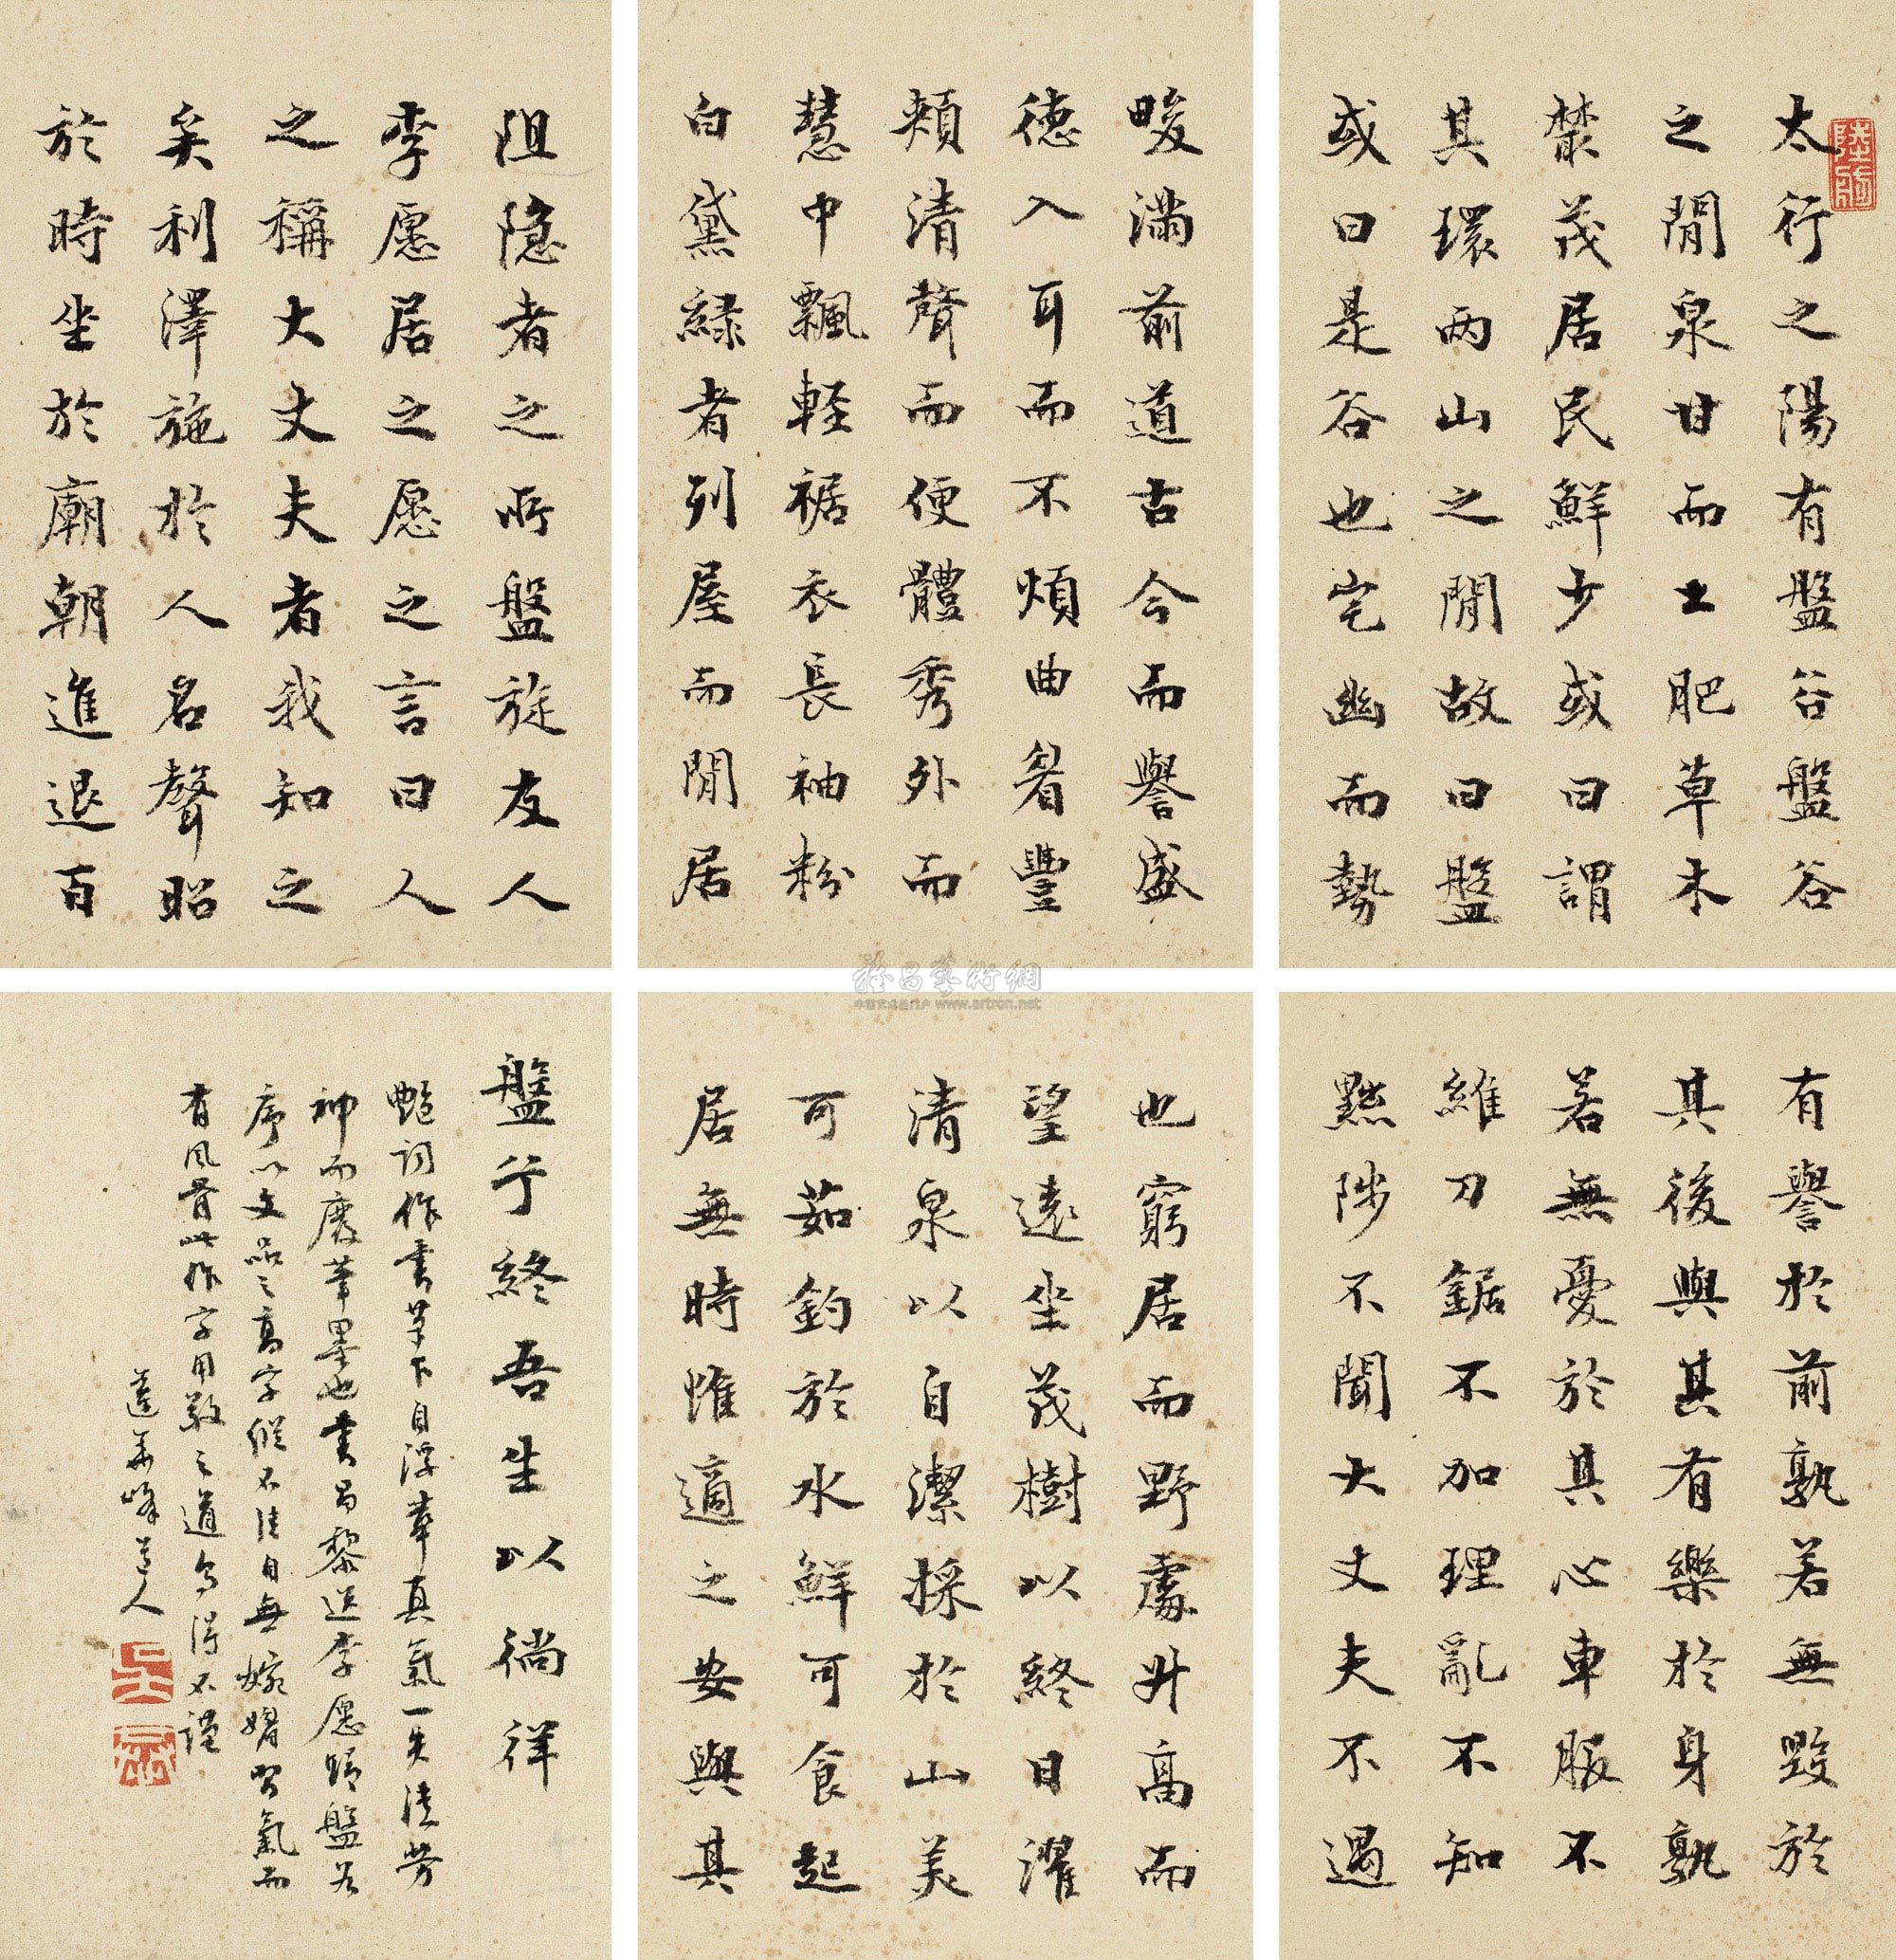 太行之陽有盤谷盤谷
之閒泉甘而土肥草木
藂茂居民鮮少或曰謂
其環兩山之閒故曰盤
或曰是谷也宅幽而勢
阻隱者之所盤旋友人
李愿居之愿之言曰人
之稱大丈夫者我知之
矣利澤施於人名聲昭
於時坐於廟朝進退百
畯滿前道古今而譽盛
德入耳而不煩曲眉豐
頰清聲而便體秀外而
慧中飄輕裾衣長袖粉
白黛綠者列屋而閒居
有譽於前孰若無毀於
其後與其有樂於身孰
若無憂於其心車服不
維刀鋸不加理亂不知
黜陟不聞大丈夫不遇
也窮居而野處升高而
望遠坐茂樹以終日濯
清泉以自潔採於山美
可茹釣於水鮮可食起
居無時惟適之安與其
盤兮終吾生以徜徉
艷詞作書筆下自浮華真氣一失徒勞
神而廢筆墨也書昌黎送李愿歸盤谷
序以文品之高字縱不佳自無婉媚習氣而
有風骨此作字用敬之道烏得不謹
蓮華峰道人
雅昌藝術網
www.artron.net